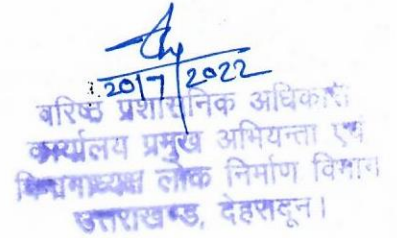 20/7/2022
वरिष्ठ प्रशासनिक अधिकारी
कार्यालय प्रमुख अभियन्ता एवं
विभागाध्यक्ष लोक निर्माण विभाग
उत्तराखण्ड, देहरादून।